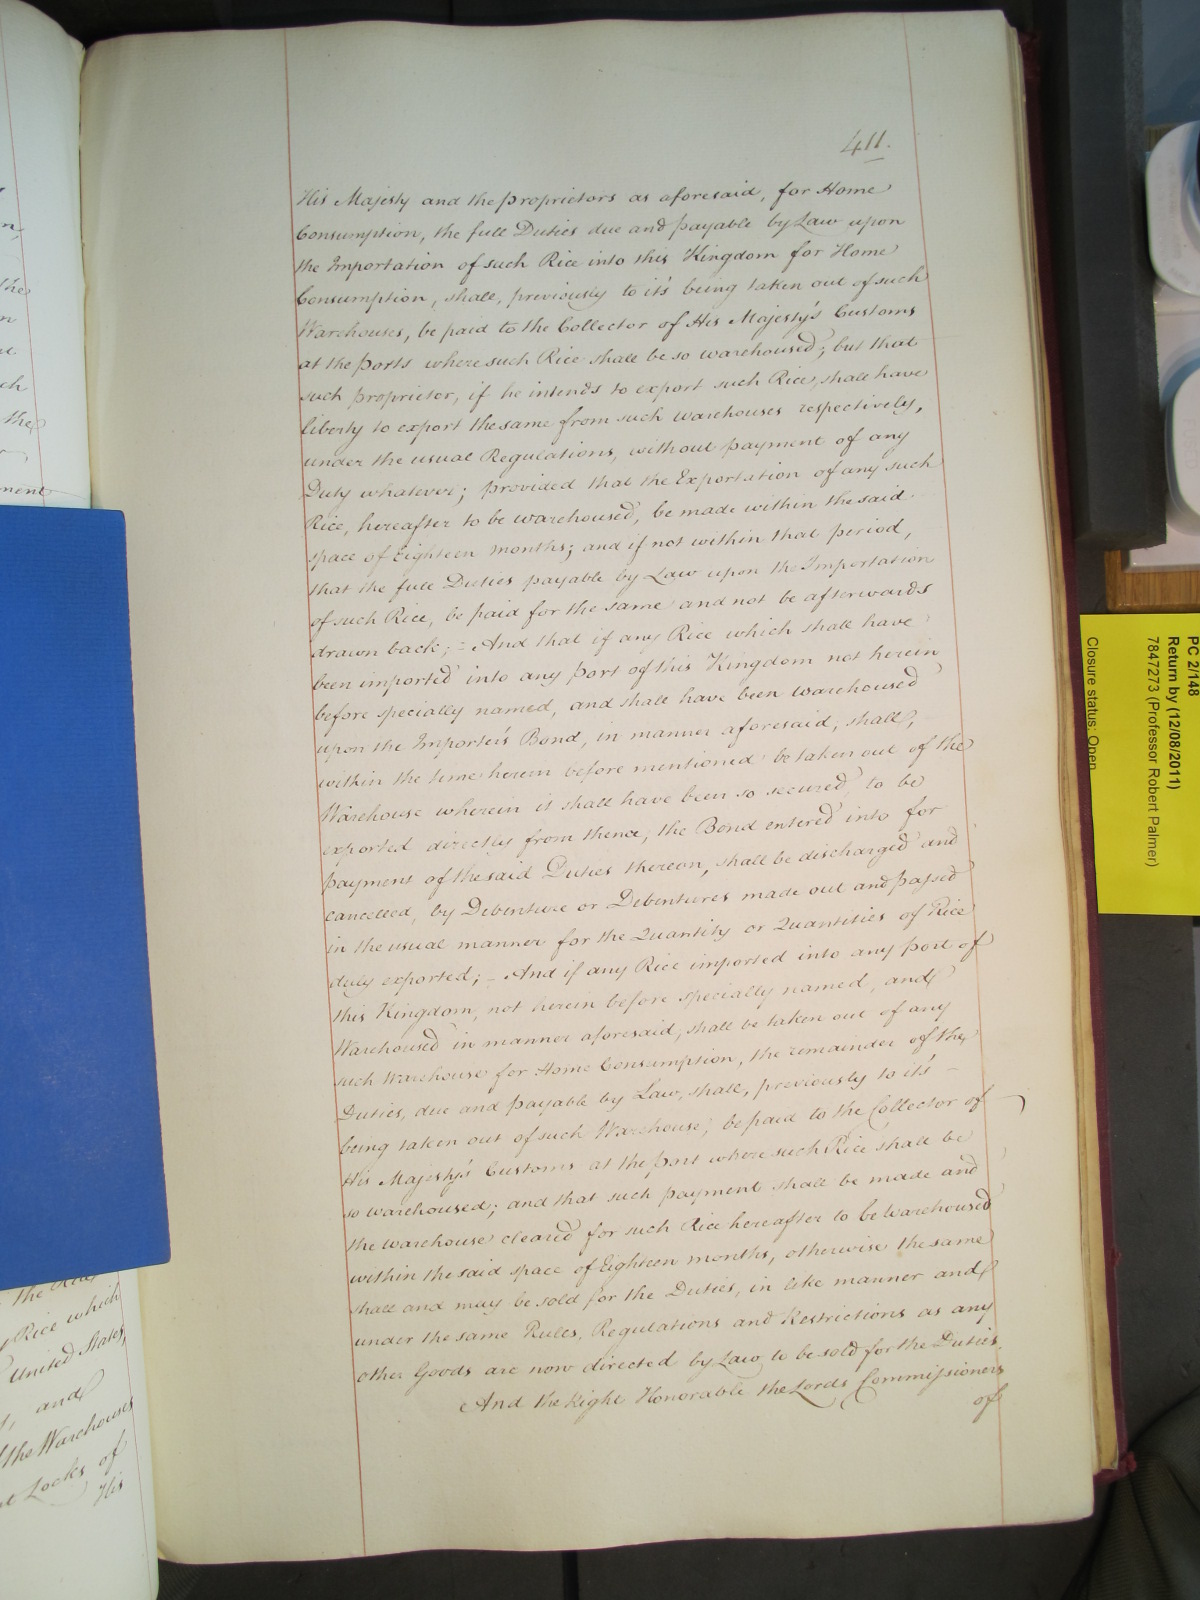 411.
His Majesty and the proprietors as aforesaid, for Home
Consumption, the full Duties due and payable by Law upon
the Importation of such Rice into this Kingdom for Home
Consumption, shall, previously to it's being taken out of such
Warehouses, be paid to the Collector of His Majesty's Customs
at the Ports where such Rice shall be so warehoused; but that
such proprietor, if he intends to export such Rice, shall have
liberty to export the same from such warehouses respectively,
under the usual Regulations, without payment of any
Duty whatever; provided that the Exportation of any such
Rice, hereafter to be warehoused, be made within the said
space of Eighteen months; and if not within that period,
that the full Duties payable by Law upon the Importation
of such Rice, be paid for the same and not be afterwards
drawn back; - And that if any Rice which shall have
been imported into any Port of this Kingdom not herein
before specially named, and shall have been warehoused
upon the Importer's Bond, in manner aforesaid, shall,
within the time herein before mentioned be taken out of the
Warehouse wherein it shall have been so secured, to be
exported directly from thence, the Bond entered into for
payment of the said Duties thereon, shall be discharged and
cancelled, by Debenture or Debentures made out and passed
in the usual manner for the Quantity or Quantities of Rice
duly exported; - And if any Rice imported into any port of
this Kingdom, not herein before specially named, and
Warehoused in manner aforesaid, shall be taken out of any
such Warehouse for Home Consumption, the remainder of the
Duties, due and payable by Law, shall, previously to it's -
being taken out of such Warehouse, be paid to the Collector of
His Majesty's Customs at the port where such Rice shall be
so warehoused; and that such payment shall be made and
the warehouse cleared for such Rice hereafter to be Warehoused
within the said space of Eighteen months, otherwise the same
shall and may be sold for the Duties, in like manner and
under the same Rules, Regulations and Restrictions as any
other Goods are now directed by Law to be sold for the Duties.
And the Right Honorable the Lords Commissioners
of
PC 2/148
Return by (12/08/2011)
7847273 (Professor Robert Palmer)
Closure status: Open
the
ch
the
ment
Rice which
United States,
and
the Warehouses
Locks of
His